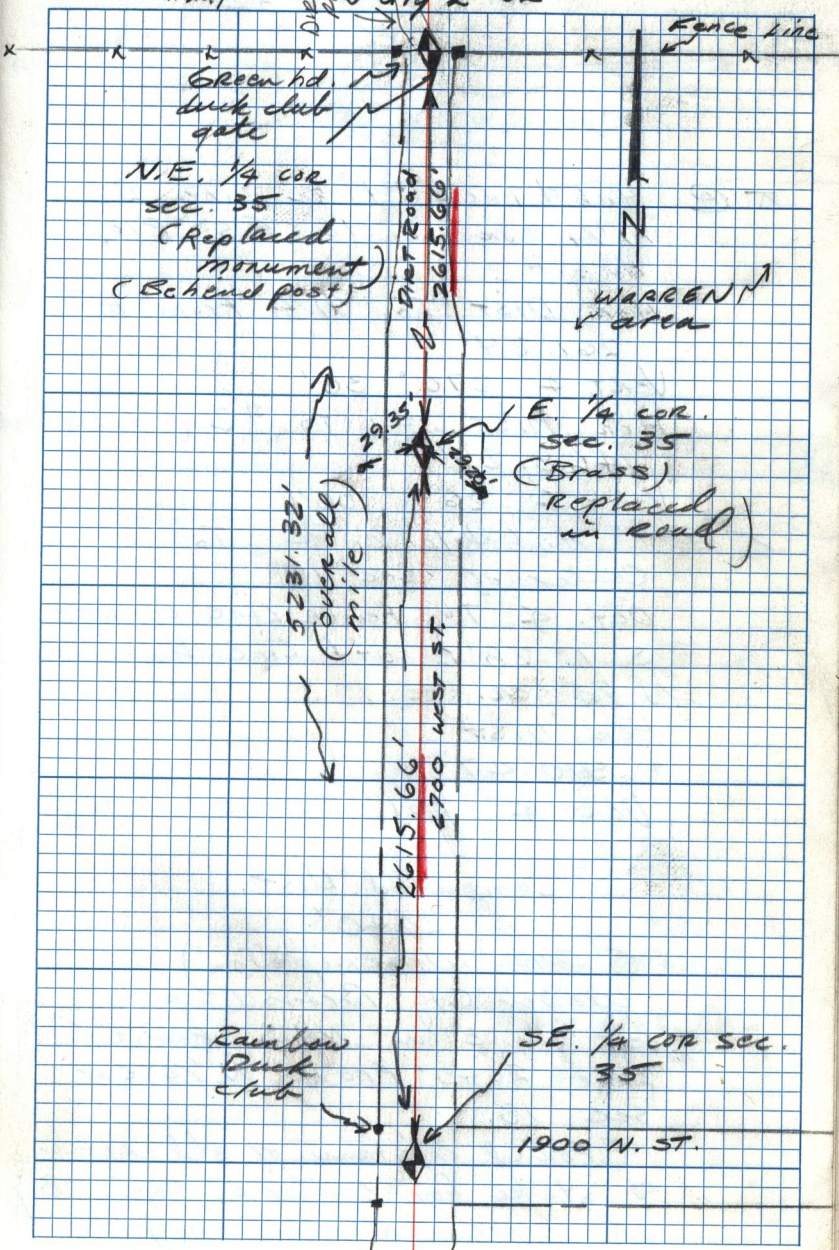 Fence Line
Green hd.
duck club
gate
N.E. 1/4 COR
sec. 35
(Replaced
monument)
(Behend post)
DIRT Road
2615.66'
N
WARREN
area
29.35'
E. 1/4 COR.
sec. 35
(Brass)
Replaced
in Road)
5231.32'
(overall)
mile
6700 WEST ST.
2615.66'
Rainbow
Duck
club
SE. 1/4 COR SEC.
35
1900 N. ST.